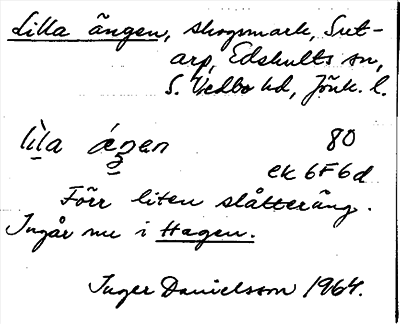 Lilla ängen, skogsmark, Sut-
arp, Edshults sn,
S. Vedbo hd, Jönk. l.
lìla ǽŋen 80
ek 6F6d
Förr liten slåtteräng.
Ingår nu i Hagen.
Inger Danielsson 1964.